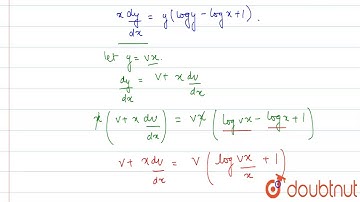 x dy/dx = y(logy - logx + 1).
let y = vx.
dy/dx = v + x dv/dx
x(v + x dv/dx) = vx(logvx - logx + 1)
v + x dv/dx = v(log vx/x + 1)
doubtnut